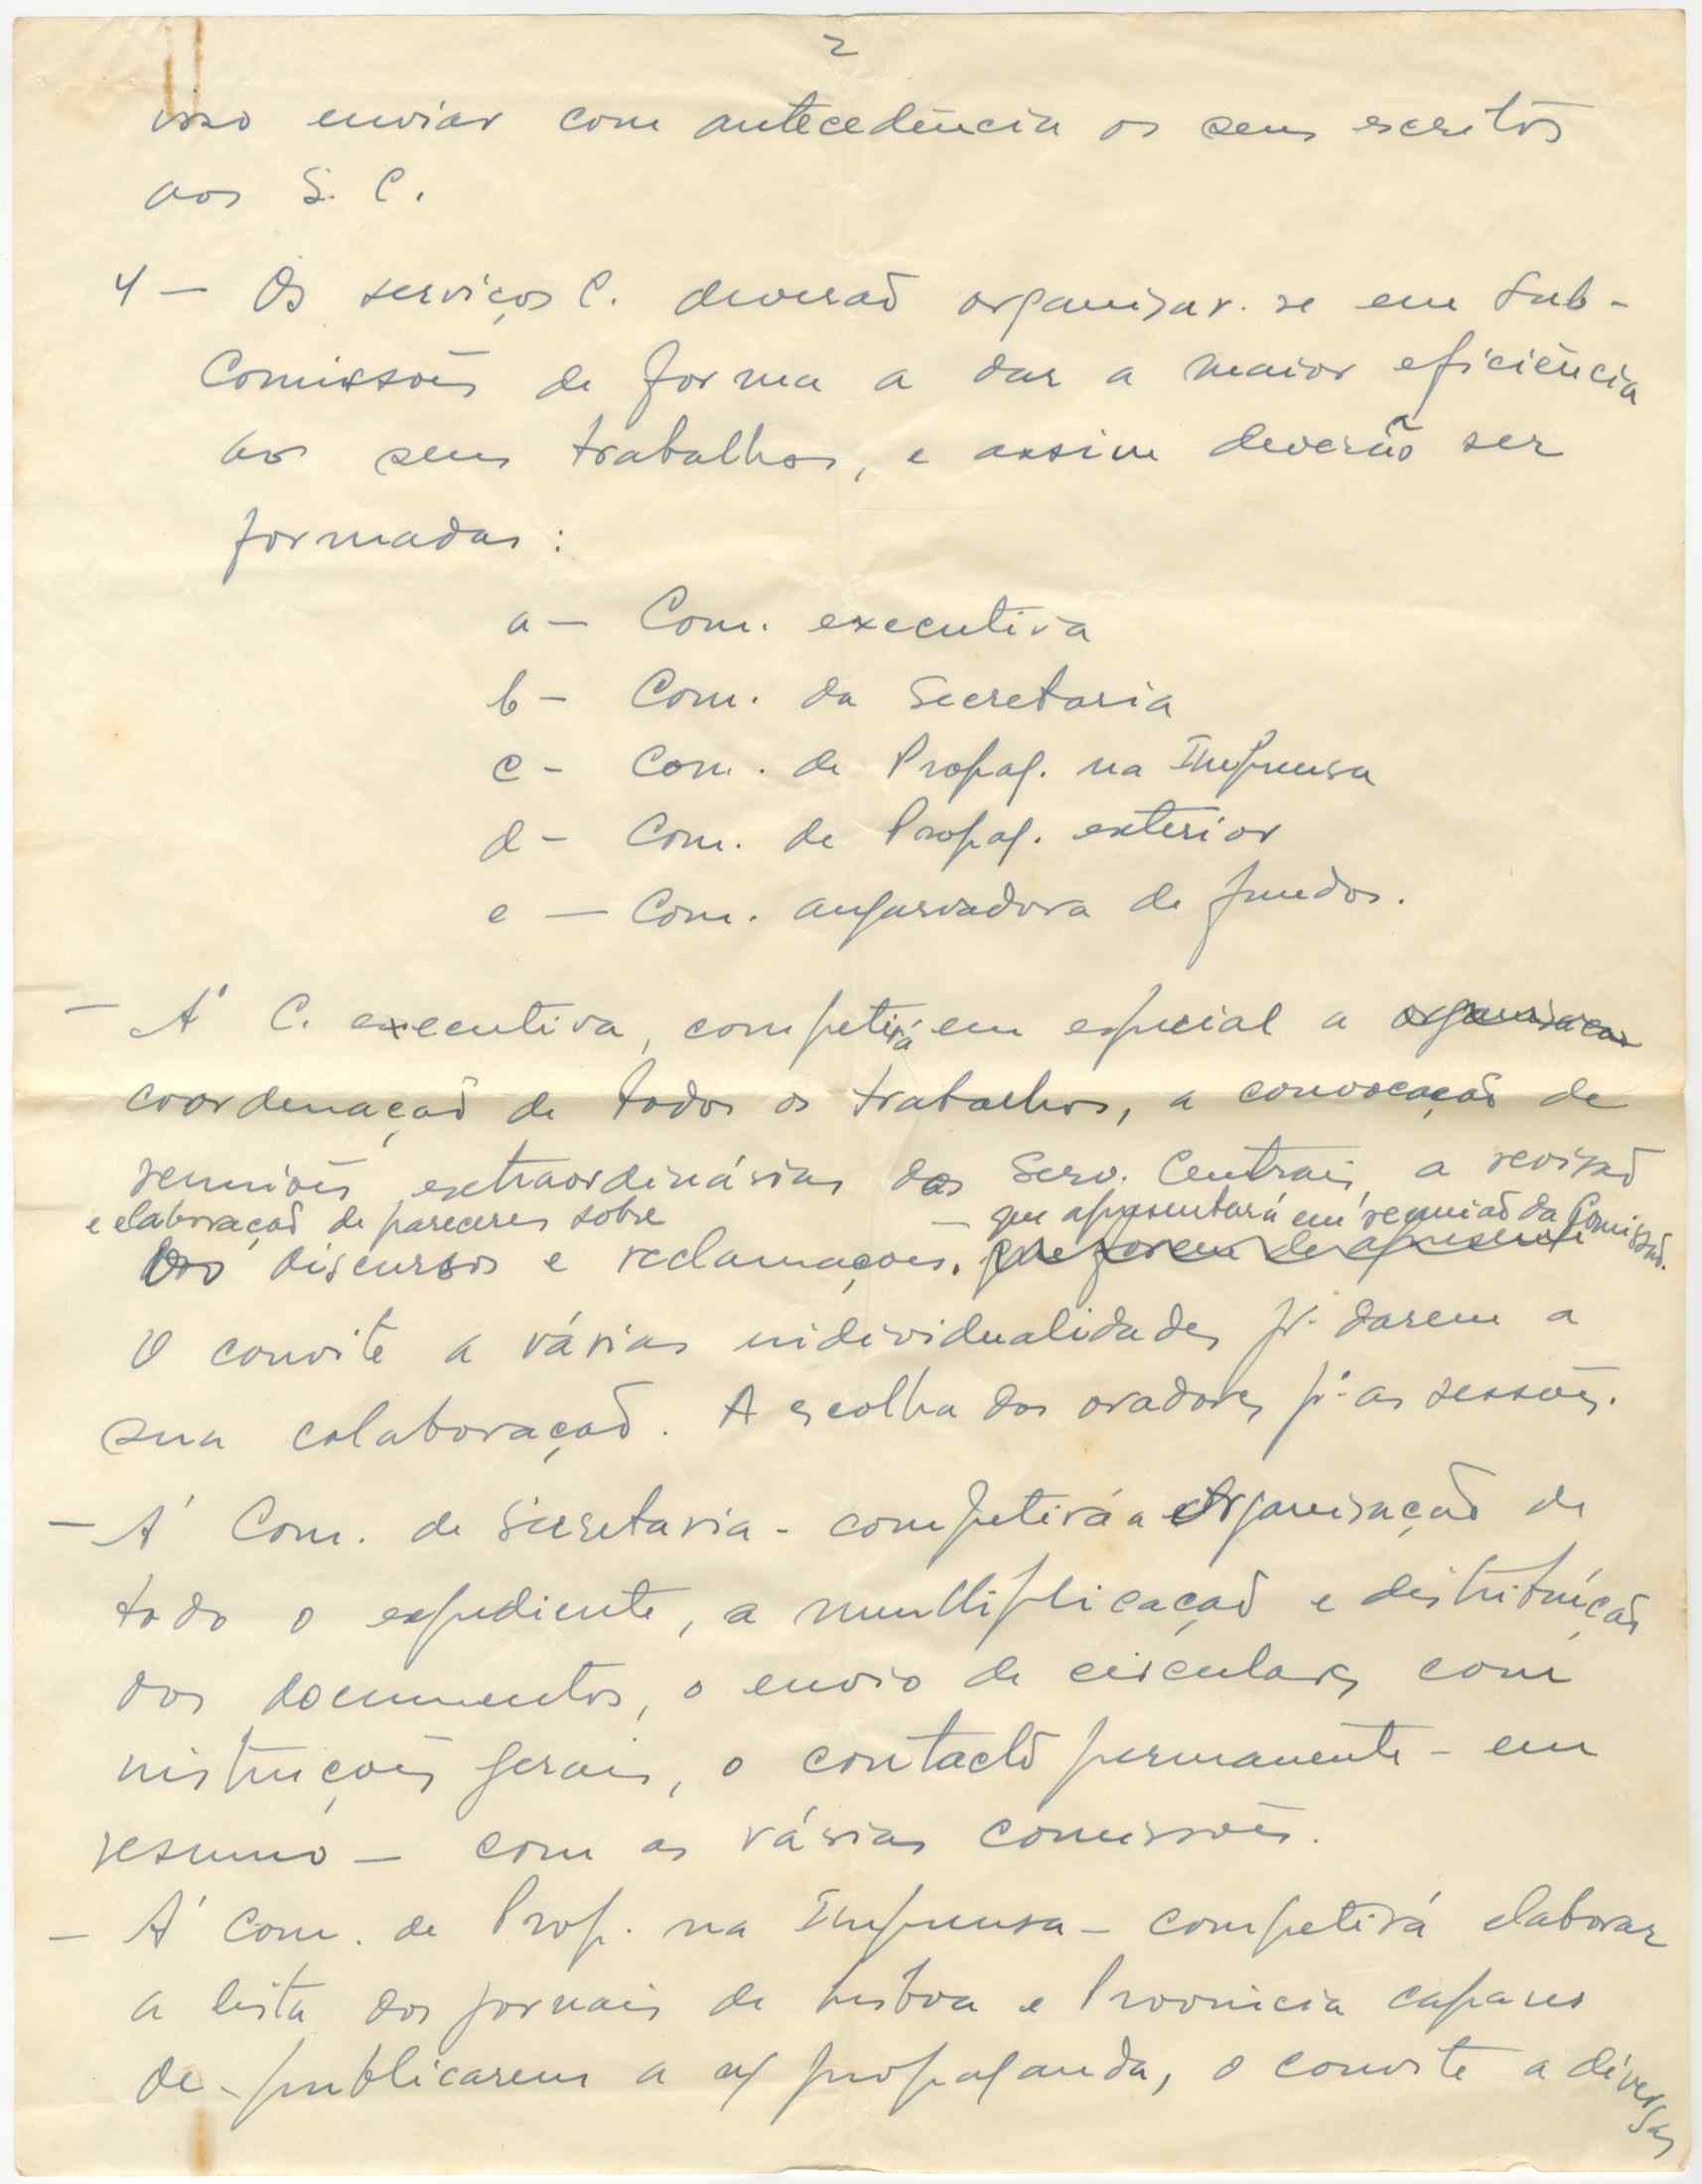 2
isso enviar com antecedência os seus escritos
aos S. C.
4 — Os serviços C. deverão organisar-se em Sub-
Comissões de forma a dar a maior eficiência
aos seus trabalhos, e assim deverão ser
formadas:
a — Com. executiva
b — Com. da Secretaria
c - Com. de Propag. na Imprensa
d - Com. de Propag. exterior
e — Com. angariadora de fundos.
— Á C. executiva, competirá em especial a organisação
coordenação de todos os trabalhos, a convocação de
reuniões extraordinárias dos Serv. Centrais, a revisão
e elaboração de pareceres sobre — que apresentará em reunião da Comissão.
dos discursos e reclamações. que forem de apresentar
O convite a várias individualidades pª darem a
sua colaboração. A escolha dos oradores pª as sessões.
— Á Com. de Secretaria - competirá a organisação de
todo o expediente, a multiplicação e distribuição
dos documentos, o envio de circulares com
instruções gerais, o contacto permanente - em
resumo — com as várias comissões.
— Á Com. de Prop. na Imprensa — competirá elaborar
a lista dos jornais de Lisboa e Província capazes
de publicarem a n/ propaganda, o convite a diversas